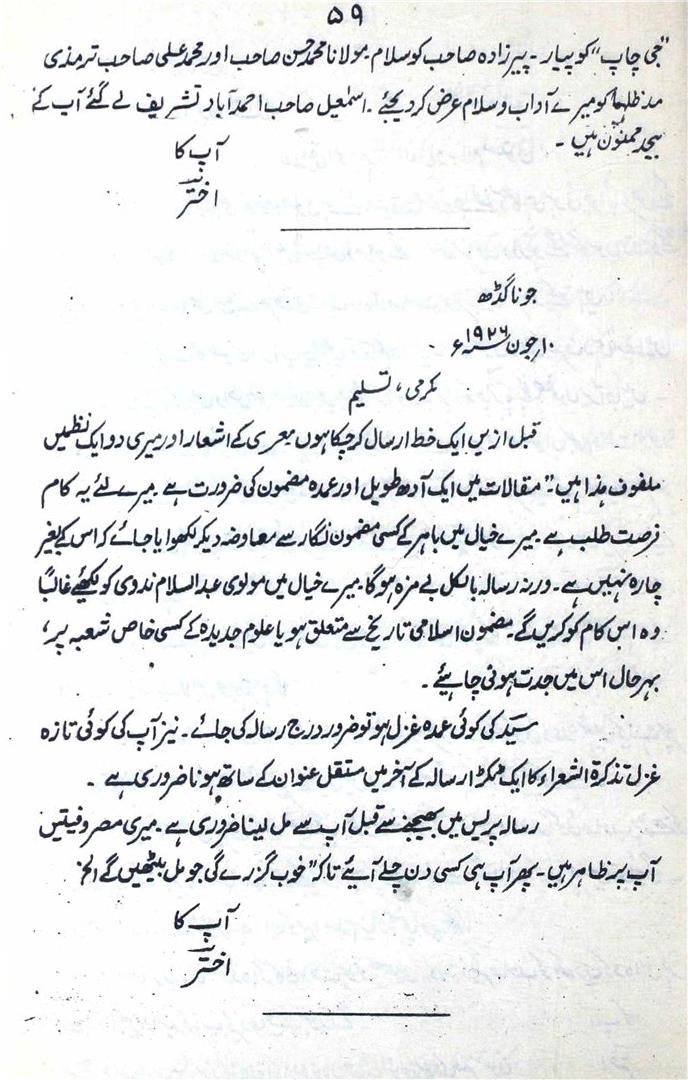 ۵۹
"جی چاپ" کو پیار۔ پیرزادہ صاحب کو سلام۔ مولانا محمد حسن صاحب اور محمد علی صاحب ترمذی
مدظلہما کو میرے آداب و سلام عرض کر دیجئے۔ اسمٰعیل صاحب احمد آباد تشریف لے گئے آپ کے
بیحد ممنون ہیں۔
آپ کا
اختر
جونا گڈھ
۱۰ جون سنہ ۱۹۲۶ء
مکرمی، تسلیم
قبل ازیں ایک خط ارسال کر چکا ہوں معری کے اشعار اور میری دو ایک نظمیں
ملفوف ھذا ہیں۔" مقالات میں ایک آدھ طویل اور عمدہ مضمون کی ضرورت ہے۔ میرے لئے یہ کام
فرصت طلب ہے۔ میرے خیال میں باہر کے کسی مضمون نگار سے معاوضہ دیکر لکھوایا جائے کہ اس کے بغیر
چارہ نہیں ہے۔ ورنہ رسالہ بالکل بے مزہ ہو گا۔ میرے خیال میں مولوی عبد السلام ندوی کو لکھئے غالباً
وہ اس کام کو کریں گے۔ مضمون اسلامی تاریخ سے متعلق ہو یا علوم جدیدہ کے کسی خاص شعبہ پر،
بہر حال اس میں جدت ہونی چاہیئے۔
سیّد کی کوئی عمدہ غزل ہو تو ضرور درج رسالہ کی جائے۔ نیز آپ کی کوئی تازہ
غزل تذکرۃ الشعراء کا ایک ٹکڑا رسالہ کے آخر میں مستقل عنوان کے ساتھ ہونا ضروری ہے۔
رسالہ پریس میں بھیجنے سے قبل آپ سے مل لینا ضروری ہے۔ میری مصروفیتیں
آپ پر ظاہر ہیں۔ پھر آپ ہی کسی دن چلے آیئے تاکہ "خوب گزرے گی جو مل بیٹھیں گے الخ
آپ کا
اختر